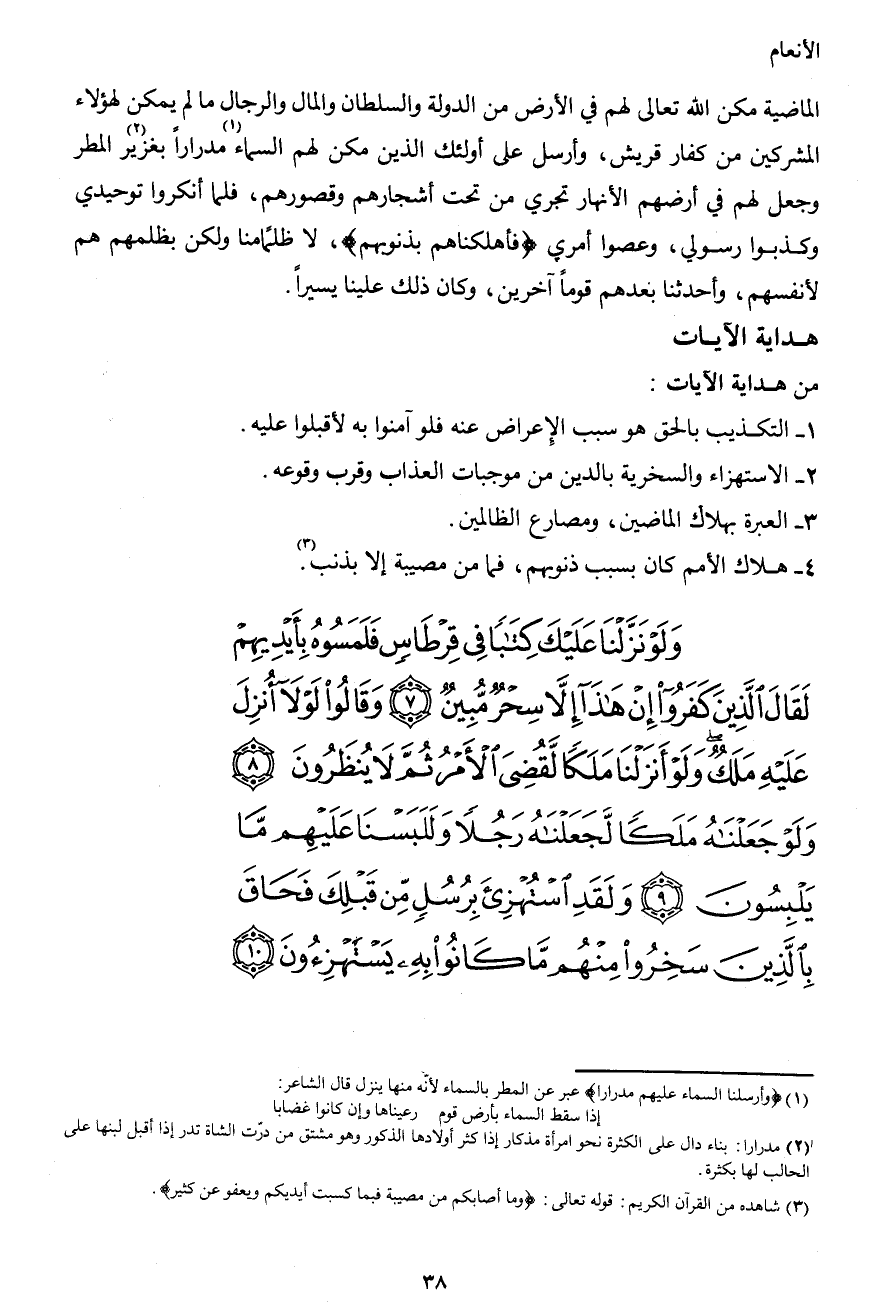 الأنعام
الماضية مكن الله تعالى لهم في الأرض من الدولة والسلطان والمال والرجال ما لم يمكن لهؤلاء
المشركين من كفار قريش، وأرسل على أولئك الذين مكن لهم السماء(١) مدراراً(٢) بغزير المطر
وجعل لهم في أرضهم الأنهار تجري من تحت أشجارهم وقصورهم، فلما أنكروا توحيدي
وكذبوا رسولي، وعصوا أمري ﴿فأهلكناهم بذنوبهم﴾، لا ظلمًا منا ولكن بظلمهم هم
لأنفسهم، وأحدثنا بعدهم قوماً آخرين، وكان ذلك علينا يسيراً.
هداية الآيات
من هداية الآيات :
١ـ التكذيب بالحق هو سبب الإعراض عنه فلو آمنوا به لأقبلوا عليه.
٢ـ الاستهزاء والسخرية بالدين من موجبات العذاب وقرب وقوعه.
٣ـ العبرة بهلاك الماضين، ومصارع الظالمين.
٤ـ هلاك الأمم كان بسبب ذنوبهم، فما من مصيبة إلا بذنب(٣).
وَلَوْ نَزَّلْنَا عَلَيْكَ كِتَٰبًا فِى قِرْطَاسٍ فَلَمَسُوهُ بِأَيْدِيهِمْ
لَقَالَ ٱلَّذِينَ كَفَرُوٓا۟ إِنْ هَٰذَآ إِلَّا سِحْرٌ مُّبِينٌ ٧ وَقَالُوا۟ لَوْلَآ أُنزِلَ
عَلَيْهِ مَلَكٌ ۖ وَلَوْ أَنزَلْنَا مَلَكًا لَّقُضِىَ ٱلْأَمْرُ ثُمَّ لَا يُنظَرُونَ ٨
وَلَوْ جَعَلْنَٰهُ مَلَكًا لَّجَعَلْنَٰهُ رَجُلًا وَلَلَبَسْنَا عَلَيْهِم مَّا
يَلْبِسُونَ ٩ وَلَقَدِ ٱسْتُهْزِئَ بِرُسُلٍ مِّن قَبْلِكَ فَحَاقَ
بِٱلَّذِينَ سَخِرُوا۟ مِنْهُم مَّا كَانُوا۟ بِهِۦ يَسْتَهْزِءُونَ ١٠
(١) ﴿وأرسلنا السماء عليهم مدرارا﴾ عبر عن المطر بالسماء لأنّه منها ينزل قال الشاعر:
إذا سقط السماء بأرض قوم رعيناها وإن كانوا غضابا
(٢) مدرارا: بناء دال على الكثرة نحو امرأة مذكار إذا كثر أولادها الذكور وهو مشتق من درّت الشاة تدر إذا أقبل لبنها على
الحالب لها بكثرة.
(٣) شاهده من القرآن الكريم: قوله تعالى: ﴿وما أصابكم من مصيبة فبما كسبت أيديكم ويعفو عن كثير﴾.
٣٨